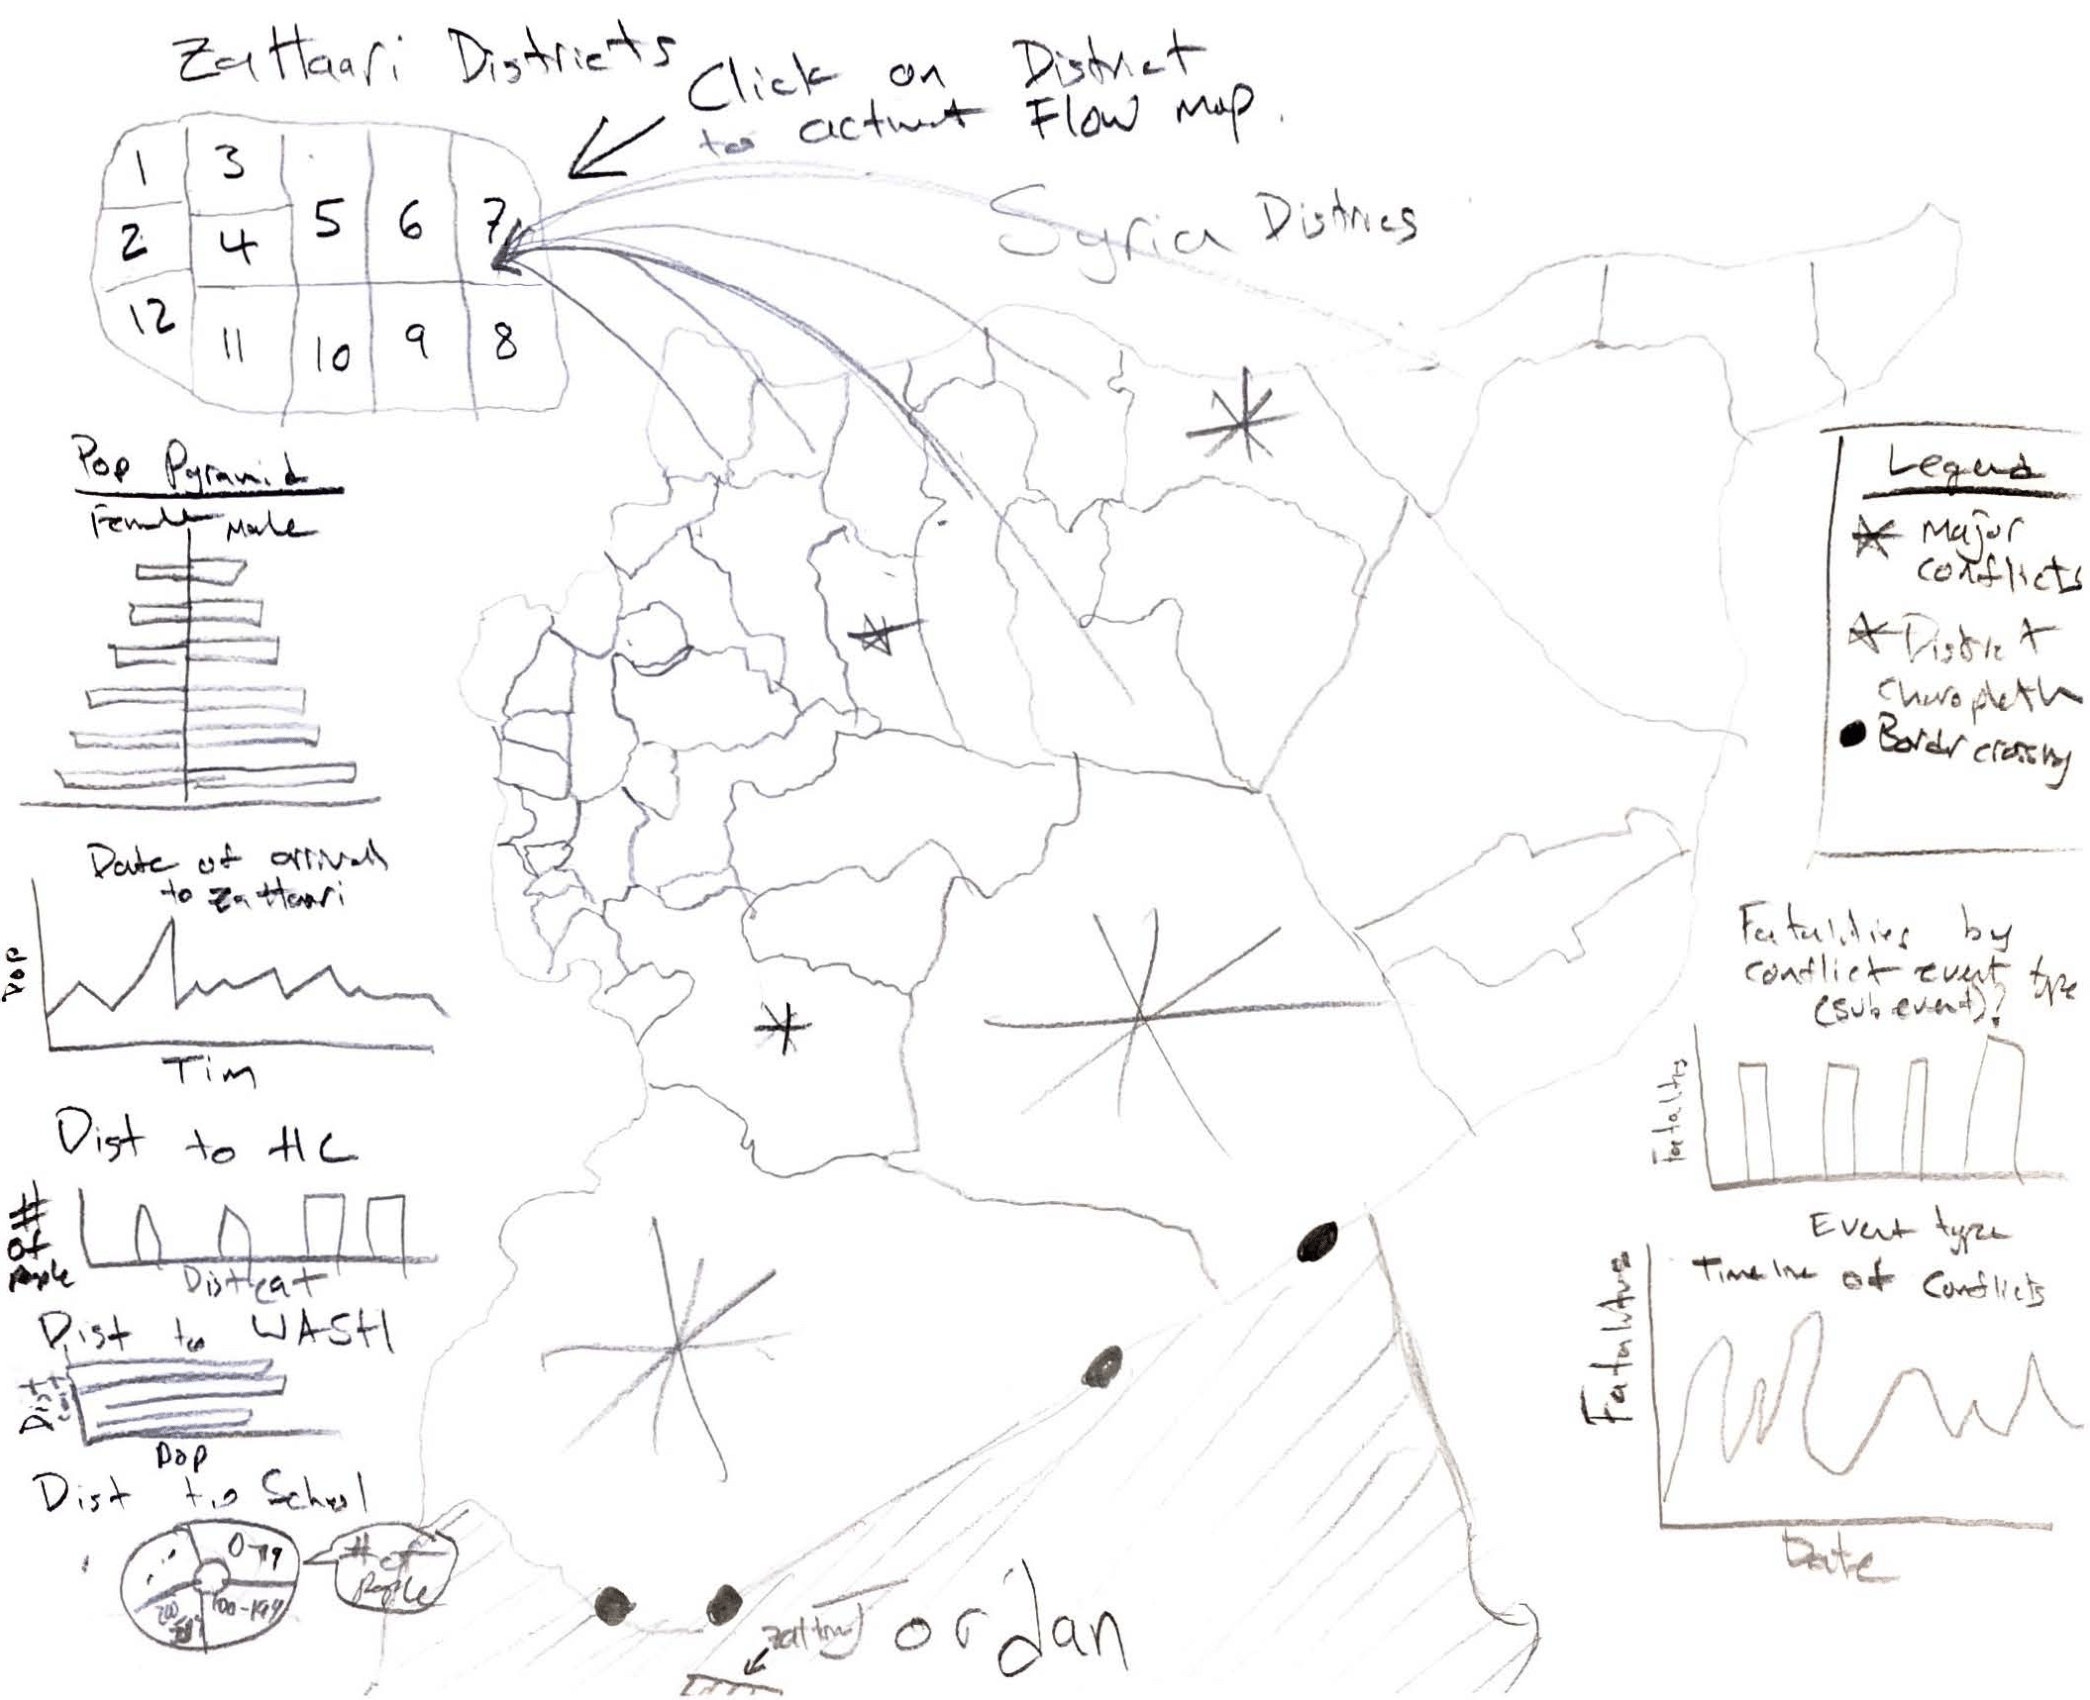 Zattaari Districts
Click on District
to activat Flow map.
1 3 5 6 7
2 4
12 11 10 9 8
Syria Districs
Pop Pyramid
Female Male
Date of arrivals
to Zattaari
Pop
Tim
Dist to HC
# of People
Dist cat
Dist to WASH
Pop
Dist to School
0-99
100-199
# of People
Legend
Major
conflicts
District
choropleth
Border crossing
Fatalities by
conflict event type
(sub event)?
Fatalities
Event type
Timeline of Conflicts
Fatalities
Date
Jordan